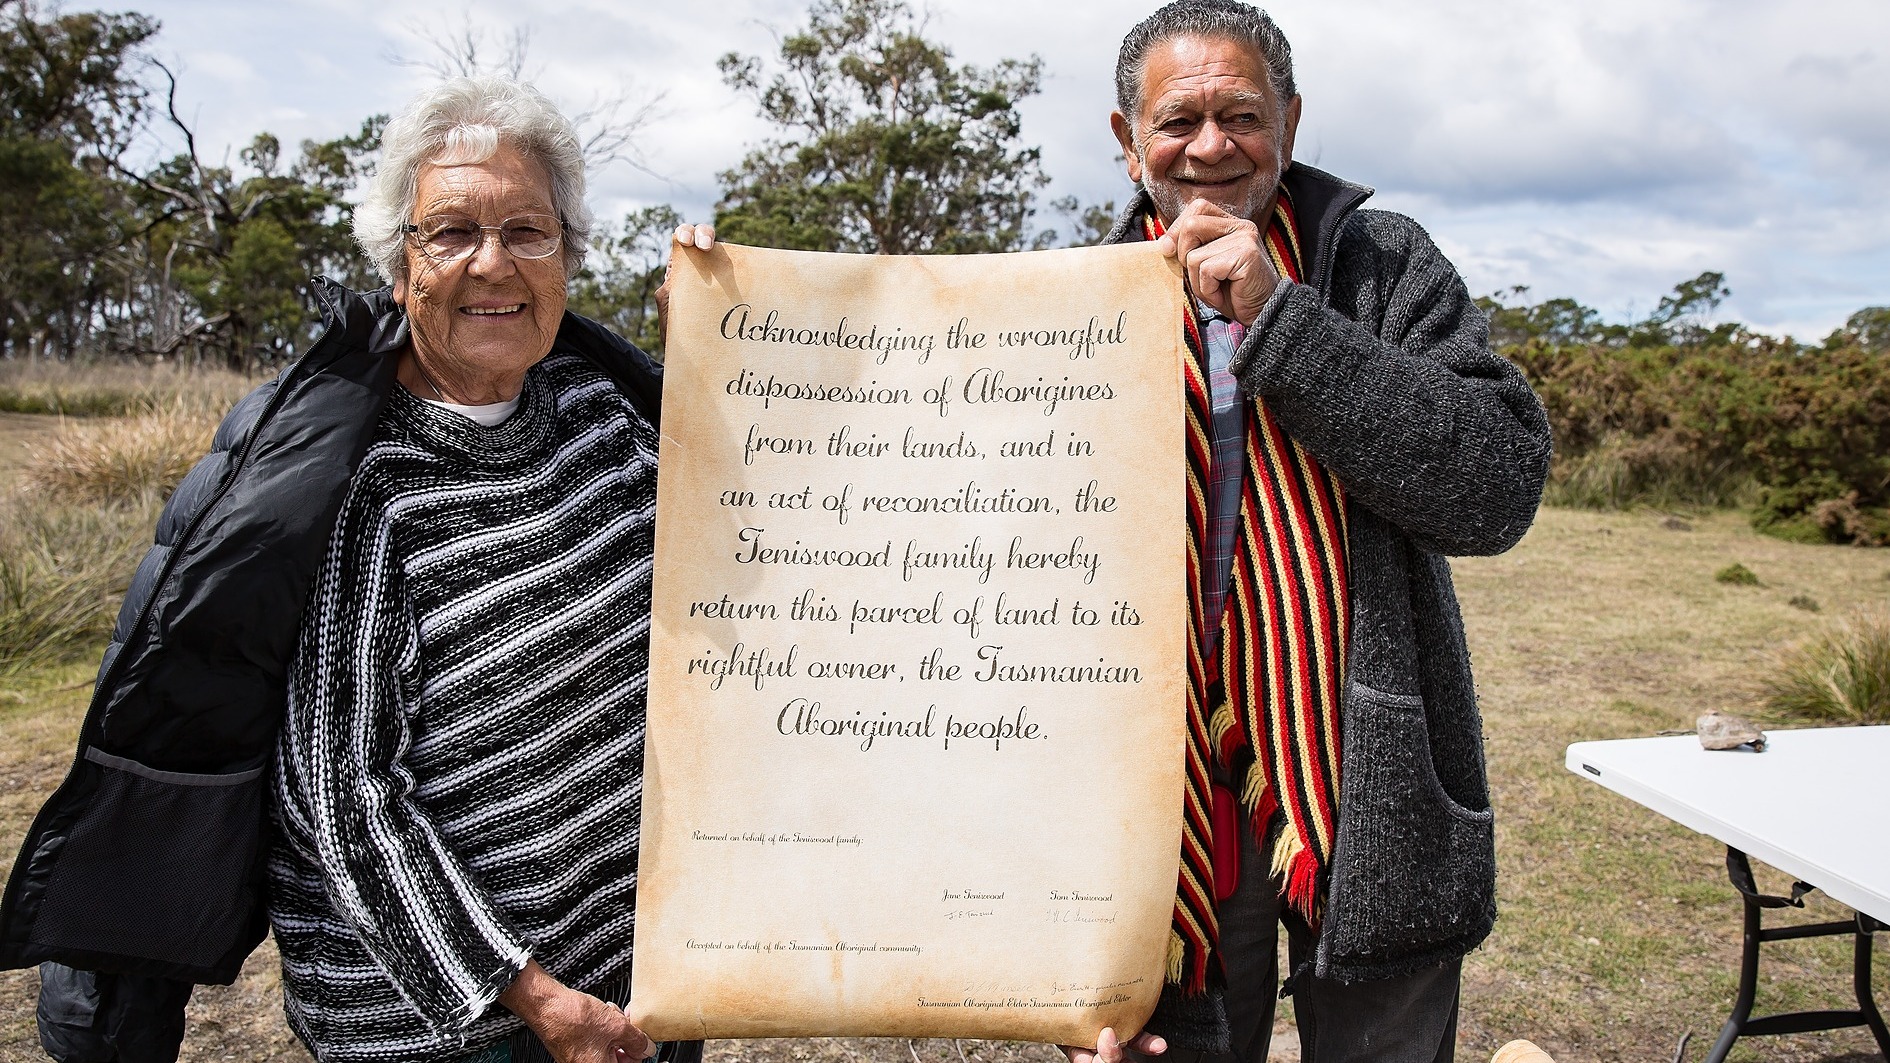 Acknowledging the wrongful
dispossession of Aborigines
from their lands, and in
an act of reconciliation, the
Teniswood family hereby
return this parcel of land to its
rightful owner, the Tasmanian
Aboriginal people.
Returned on behalf of the Teniswood family:
Jane Teniswood Tom Teniswood
Accepted on behalf of the Tasmanian Aboriginal community:
Tasmanian Aboriginal Elder Tasmanian Aboriginal Elder